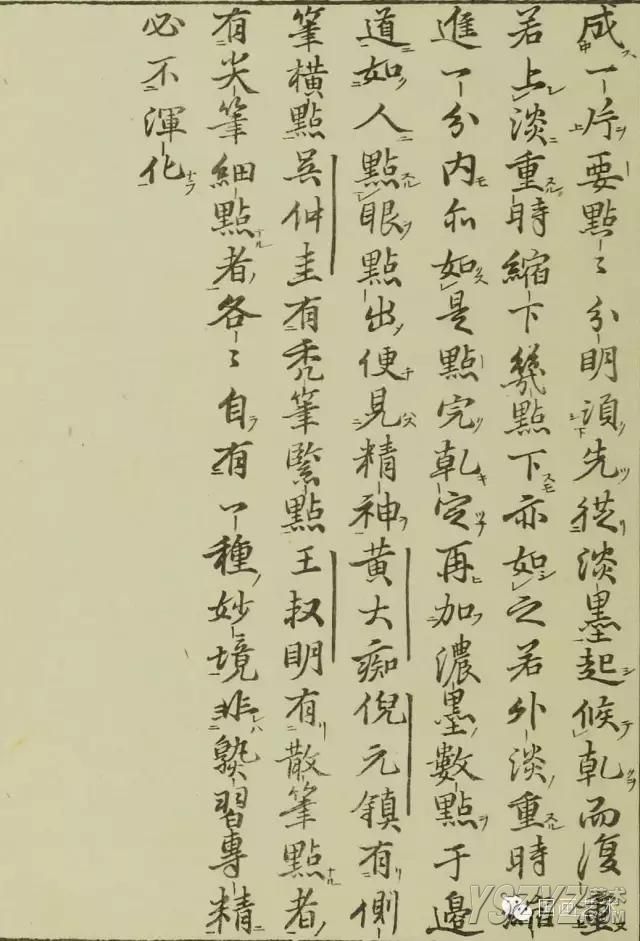 成一片要點〻分明須先從淡墨起候乾而復重
若上淡重時縮下幾點下亦如之若外淡重時縮
進一分内亦如是點完乾定再加濃墨數點于邊
道如人點眼點出便見精神黄大痴倪元鎮有側
筆横點吳仲圭有秃筆緊點王叔明有散筆點者
有尖筆細點者各〻自有一種妙境非熟習專精
必不渾化
国画艺术